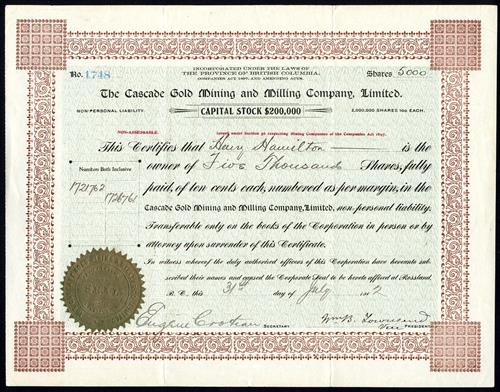 INCORPORATED UNDER THE LAWS OF
THE PROVINCE OF BRITISH COLUMBIA.
COMPANIES ACT 1897, AND AMENDING ACTS.
No. 1748
Shares 5000
The Cascade Gold Mining and Milling Company, Limited.
NON-PERSONAL LIABILITY.
CAPITAL STOCK $200,000
2,000,000 SHARES 10c EACH.
NON-ASSESSABLE.
Issued under Section 56 respecting Mining Companies of the Companies Act 1897.
This Certifies that Harry Hamilton is the
owner of Five Thousand Shares, fully
Numbers Both Inclusive
1721762
1726761
paid, of ten cents each, numbered as per margin, in the
Cascade Gold Mining and Milling Company, Limited, non-personal liability.
Transferable only on the books of the Corporation in person or by
attorney upon surrender of this Certificate.
In witness whereof the duly authorized officers of this Corporation have hereunto sub-
scribed their names and caused the Corporate Seal to be hereto affixed at Rossland,
B. C., this 31st day of July 2
Eugene Croteau
SECRETARY.
Wm B. Townsend
Vice PRESIDENT